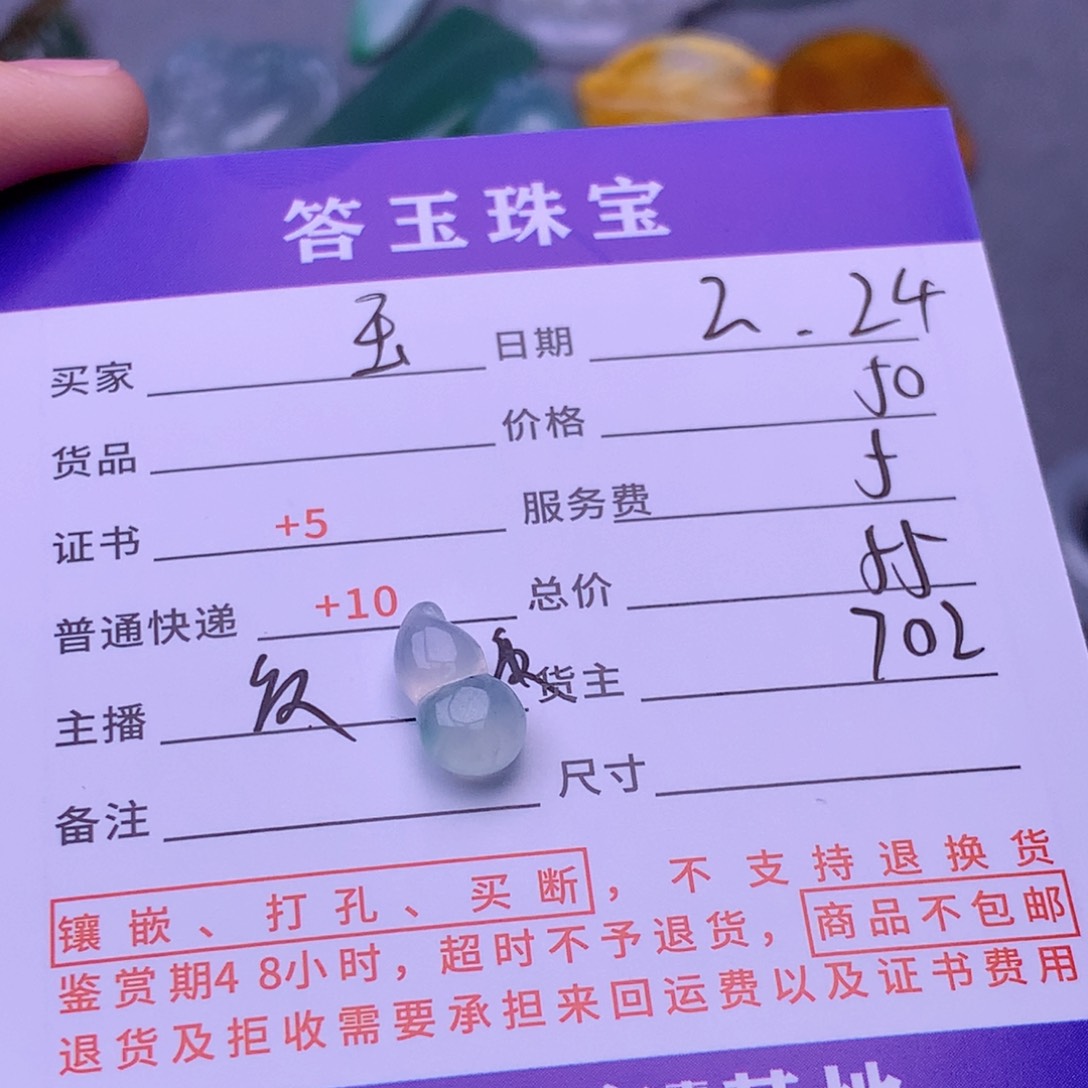 答玉珠宝
买家 玉 日期 2.24
货品 价格 50
证书 +5 服务费 5
普通快递 +10 总价 55
主播 货主 702
备注 尺寸
镶嵌、打孔、买断，不支持退换货
鉴赏期48小时，超时不予退货，商品不包邮
退货及拒收需要承担来回运费以及证书费用